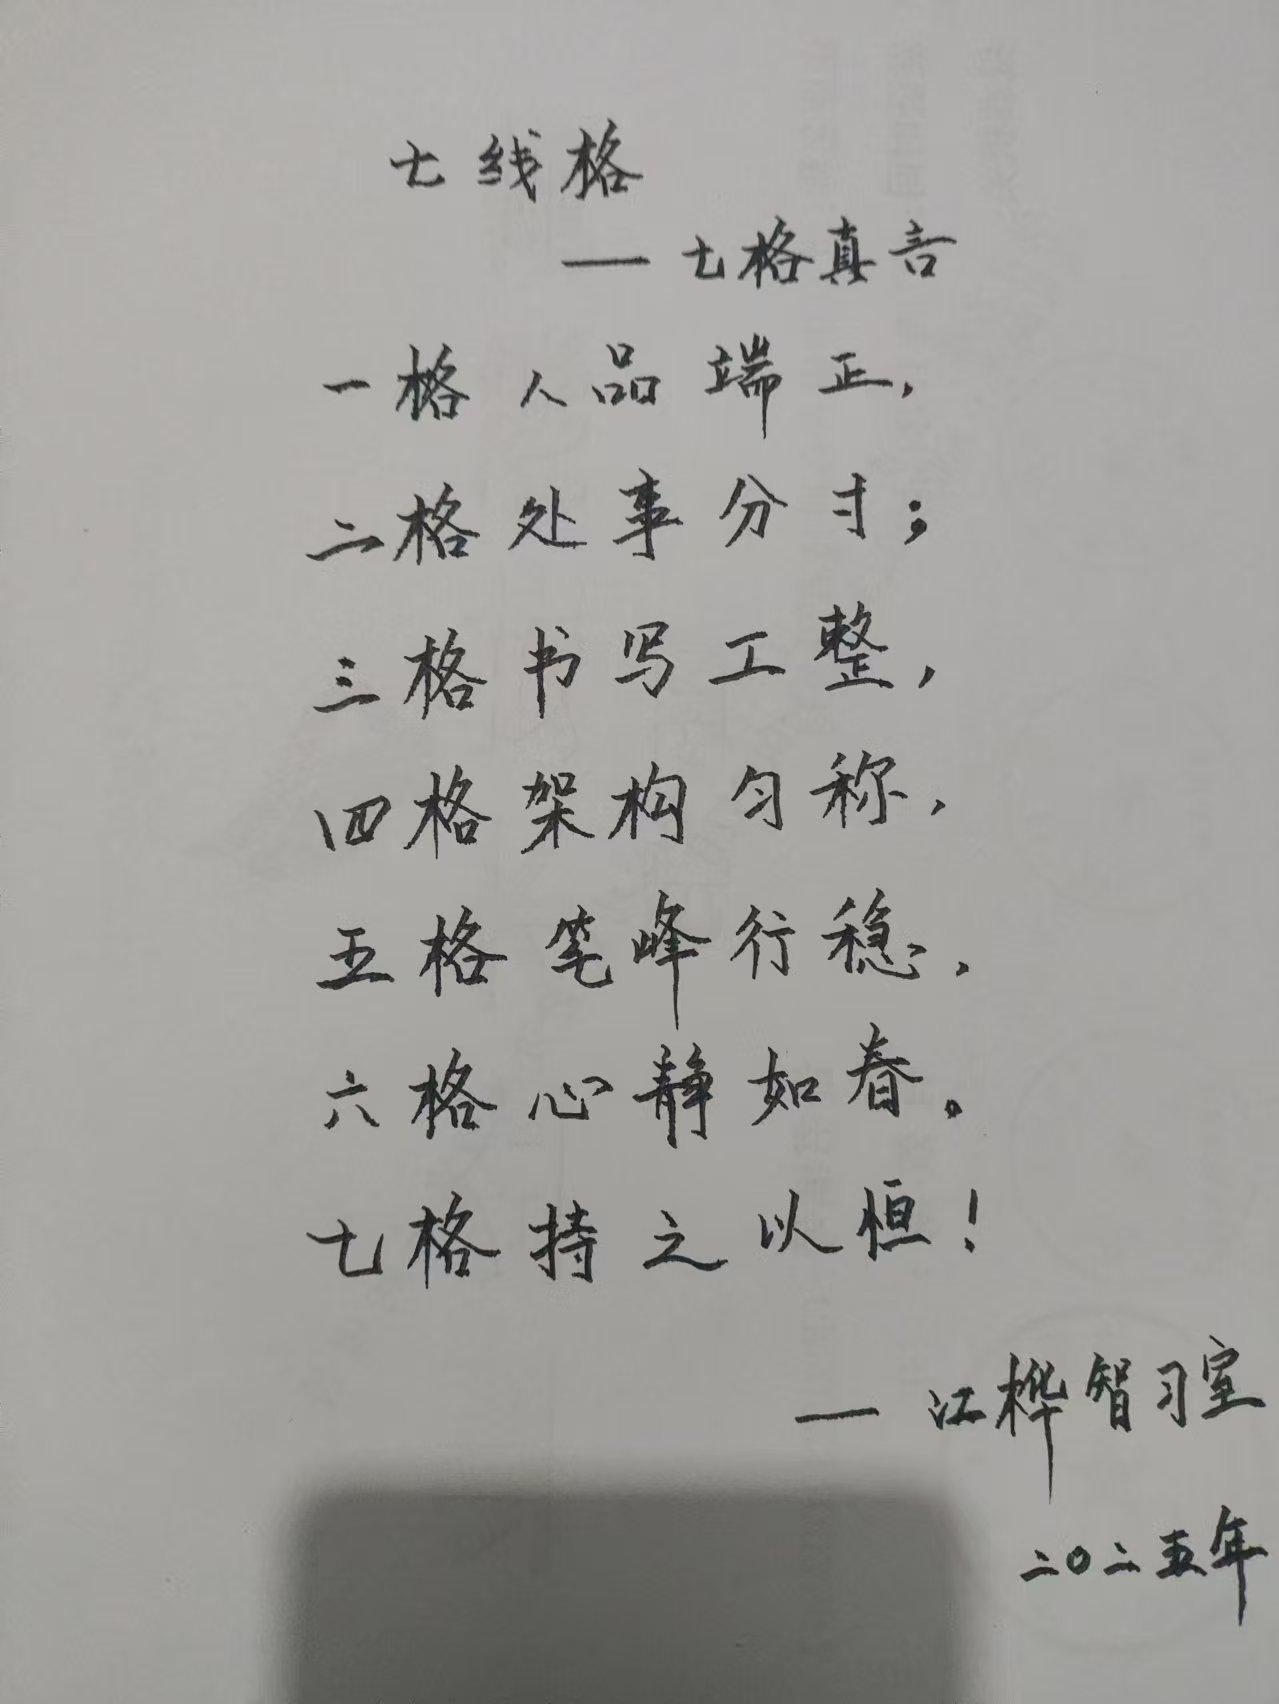 七线格
——七格真言
一格人品端正，
二格处事分寸；
三格书写工整，
四格架构匀称，
五格笔峰行稳，
六格心静如春。
七格持之以恒！
——江桦智习室
二〇二五年